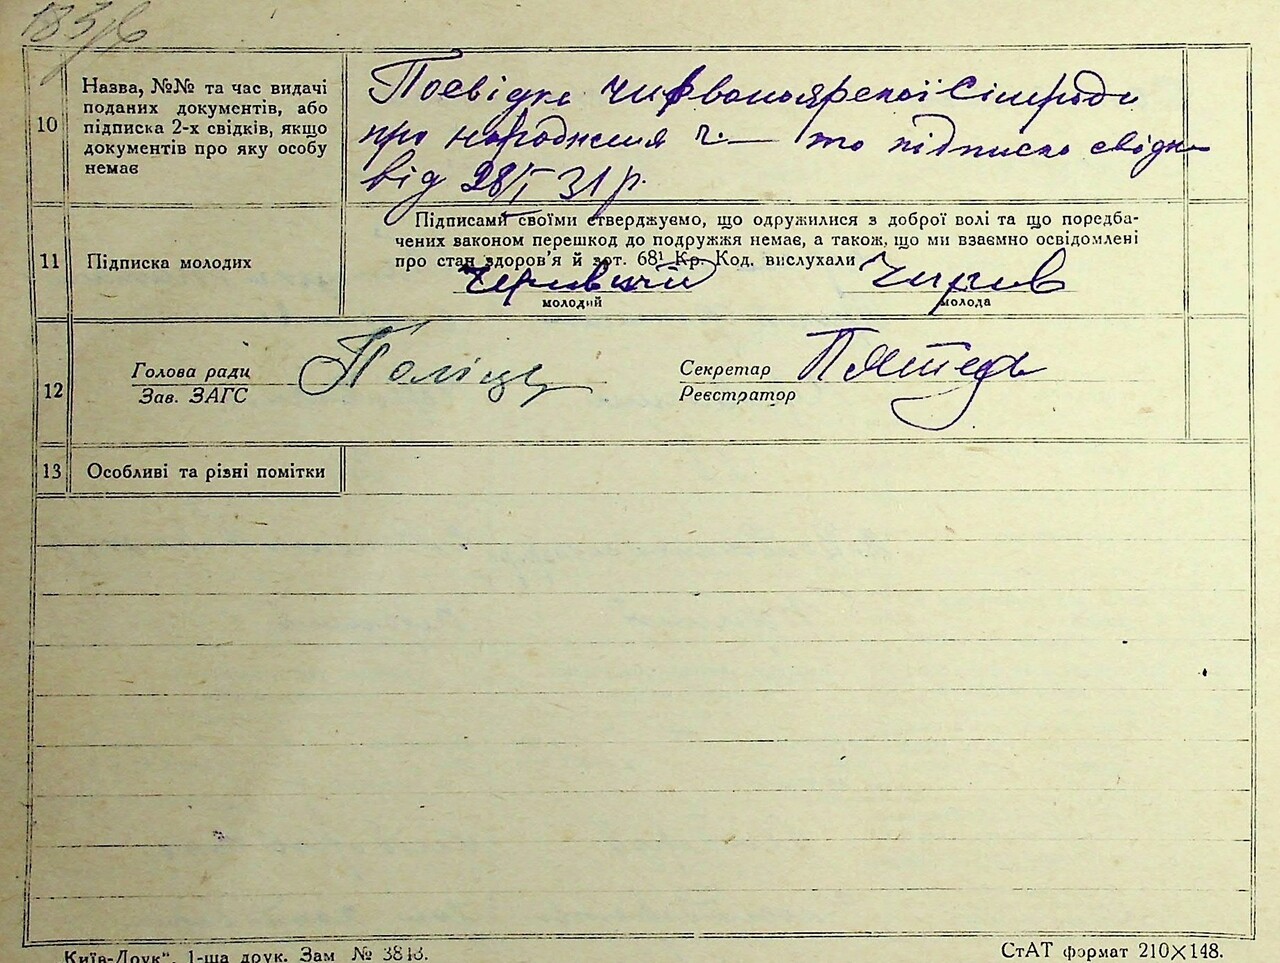 183/6
10
Назва, №№ та час видачі
поданих документів, або
підписка 2-х свідків, якщо
документів про яку особу
немає
Посвідка Червоноярської Сільради
про народження ч. — то підписка свідк
від 28/I 31 р.
11
Підписка молодих
Підписами своїми стверджуємо, що одружилися з доброї волі та що поредба-
чених законом перешкод до подружжя немає, а також, що ми взаємно освідомлені
про стан здоров'я й зот. 68¹ Кр. Код. вислухали
молодий
молода
12
Голова ради
Зав. ЗАГС
Секретар
Реєстратор
13
Особливі та різні помітки
Київ-Друк", 1-ша друк. Зам № 3813.
СтАТ формат 210×148.